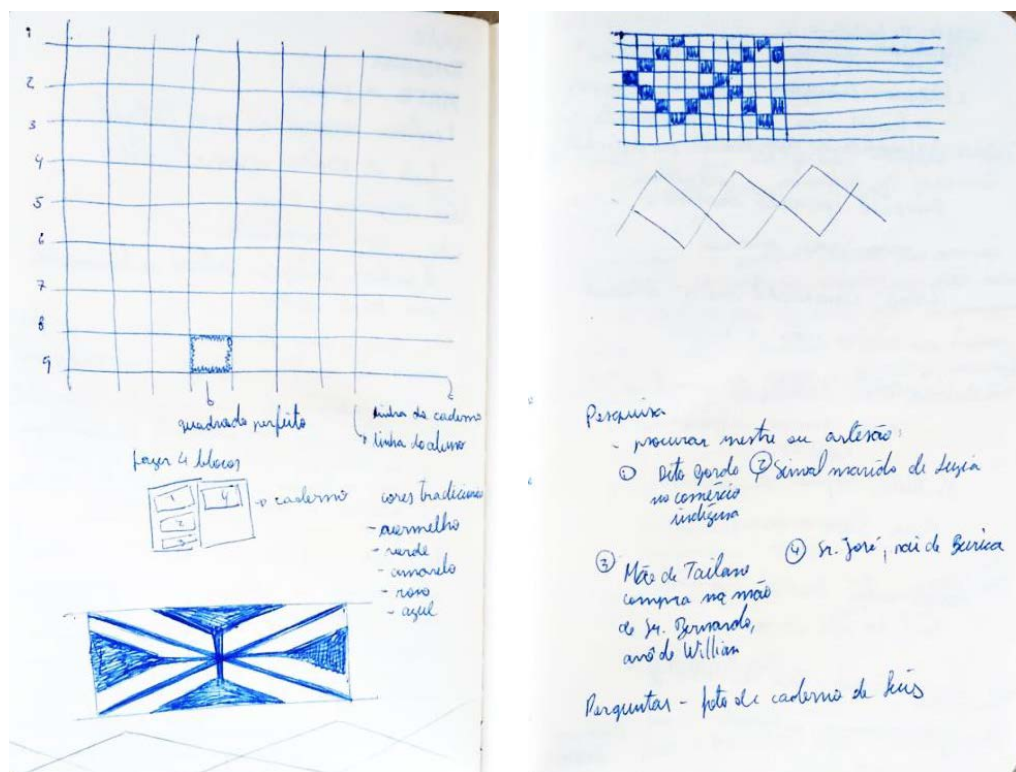 1
2
3
4
5
6
7
8
9
quadrado perfeito
linha do caderno
linha do aluno
fazer 4 blocos
1
2
3
4
caderno
cores tradicionais
- vermelho
- verde
- amarelo
- roxo
- azul
Pesquisa
- procurar mestre ou artesão:
① Dito gordo
no comércio
indígena
② Sinval marido de Luzia
③ Mãe de Tailane
compra na mão
de Sr. Bernardo,
avô de Willian
④ Sr. José, pai de
Perguntar - foto de caderno de